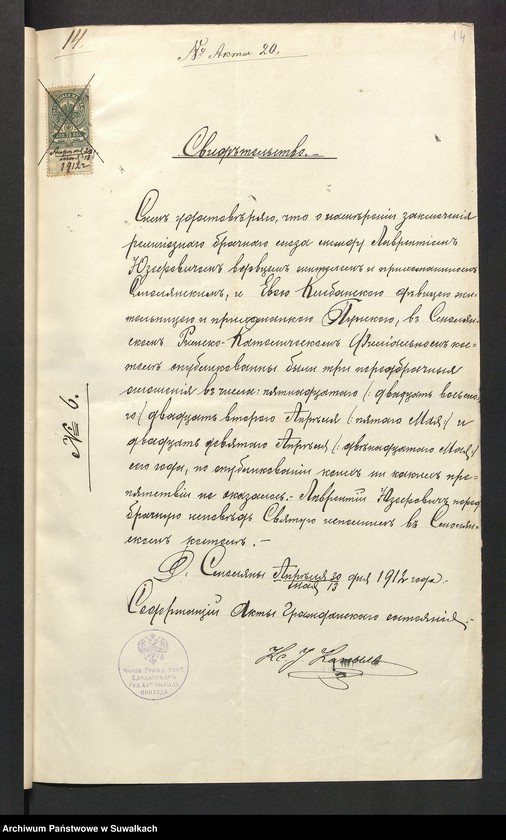 14
14
№ Акта 20.
Апрѣля 30
мая 13
1912 г
Свидѣтельство.
Симъ удостовѣряю, что о намѣреніи заключенія
религіознаго брачнаго союза между Лаврентіемъ
Юзеровичемъ вдовцемъ жителемъ и прихожаниномъ
и Евою дѣвицею жи-
тельницею и прихожанкою Пунскою, въ
скомъ Римско-Католическомъ Филіальномъ кос-
телѣ опубликованны были три предбрачныя
оглашенія въ числа: пятнадцатаго (: двадцать восьма-
го:) двадцать второго Апрѣля (: пятаго Мая:) и
двадцать девятаго Апрѣля (: двѣнадцатаго Мая:)
сего года, по опубликованіи коихъ ни какихъ пре-
пятствій не оказалось. Лаврентій Юзеровичъ пред
брачную исповѣдь Святую исполнилъ въ
скомъ костелѣ. —
№ 6.
Д. Апрѣля 30 / мая 13 дня 1912 года.
Содержащій Акты Гражданскаго состоянія:
Кс. J.
Чинов. Гражд. сост.
Рим. Кат. филіал.
прихода
Archiwum Państwowe w Suwałkach